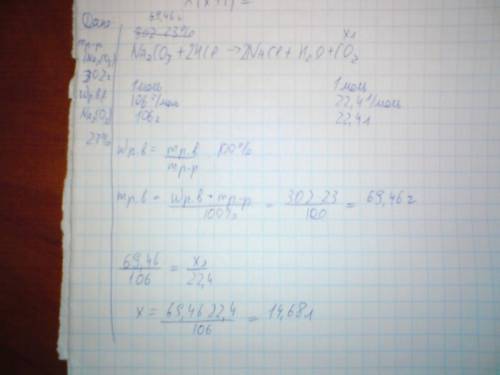 Дано
mр-р
(Na₂CO₃)
302г
Wр.в.
Na₂CO₃
23%
69,46г
xл
Na₂CO₃ + 2HCl → 2NaCl + H₂O + CO₂
1моль 1моль
106г/моль 22,4л/моль
106г 22,4л
Wр.в = mр.в / mр-р 100%
mр.в = Wр.в • mр-р / 100% = 302 23 / 100 = 69,46г
69,46 / 106 = xл / 22,4
x = 69,46 22,4 / 106 = 14,68л